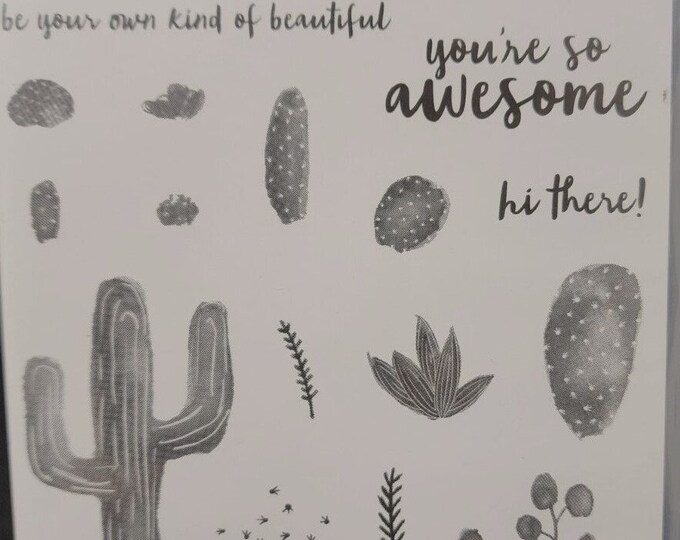 be your own kind of beautiful
you're so
awesome
hi there!